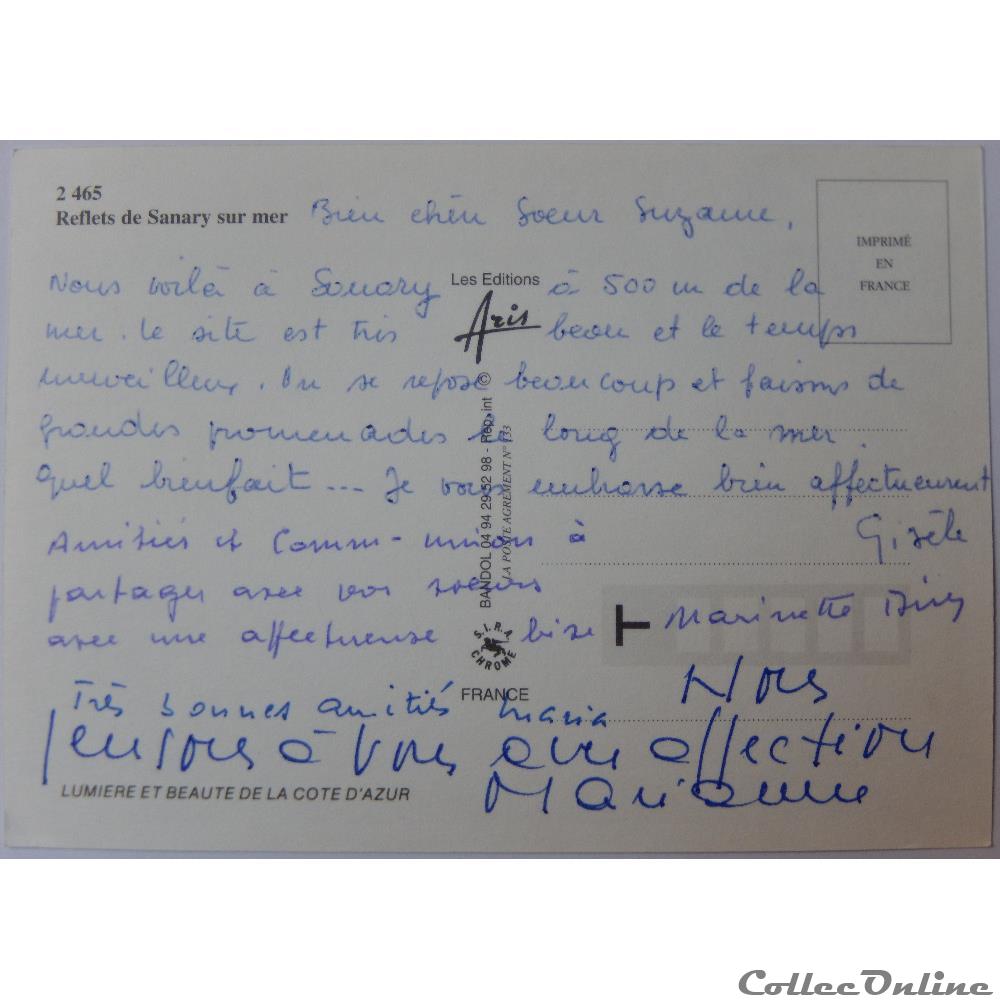 2 465
Reflets de Sanary sur mer
Bien chère Soeur Suzanne,
IMPRIMÉ
EN
FRANCE
Les Editions
Aris
Nous voilà à Sanary à 500 m de la
mer. Le site est très beau et le temps
merveilleux. On se repose beaucoup et faisons de
grandes promenades le long de la mer.
Quel bienfait... Je vous embrasse bien affectueusement
Gisèle
Amitiés et Comm-union à
partager avec vos soeurs
avec une affectueuse bise Marinette
Très bonnes amitiés Maria
Nous
pensons à vous avec affection
Marianne
BANDOL 04 94 29 52 98 - Rep. int ©
LA POSTE AGREMENT N° 133
S.I.R.A
CHROME
FRANCE
LUMIERE ET BEAUTE DE LA COTE D'AZUR
CollecOnline